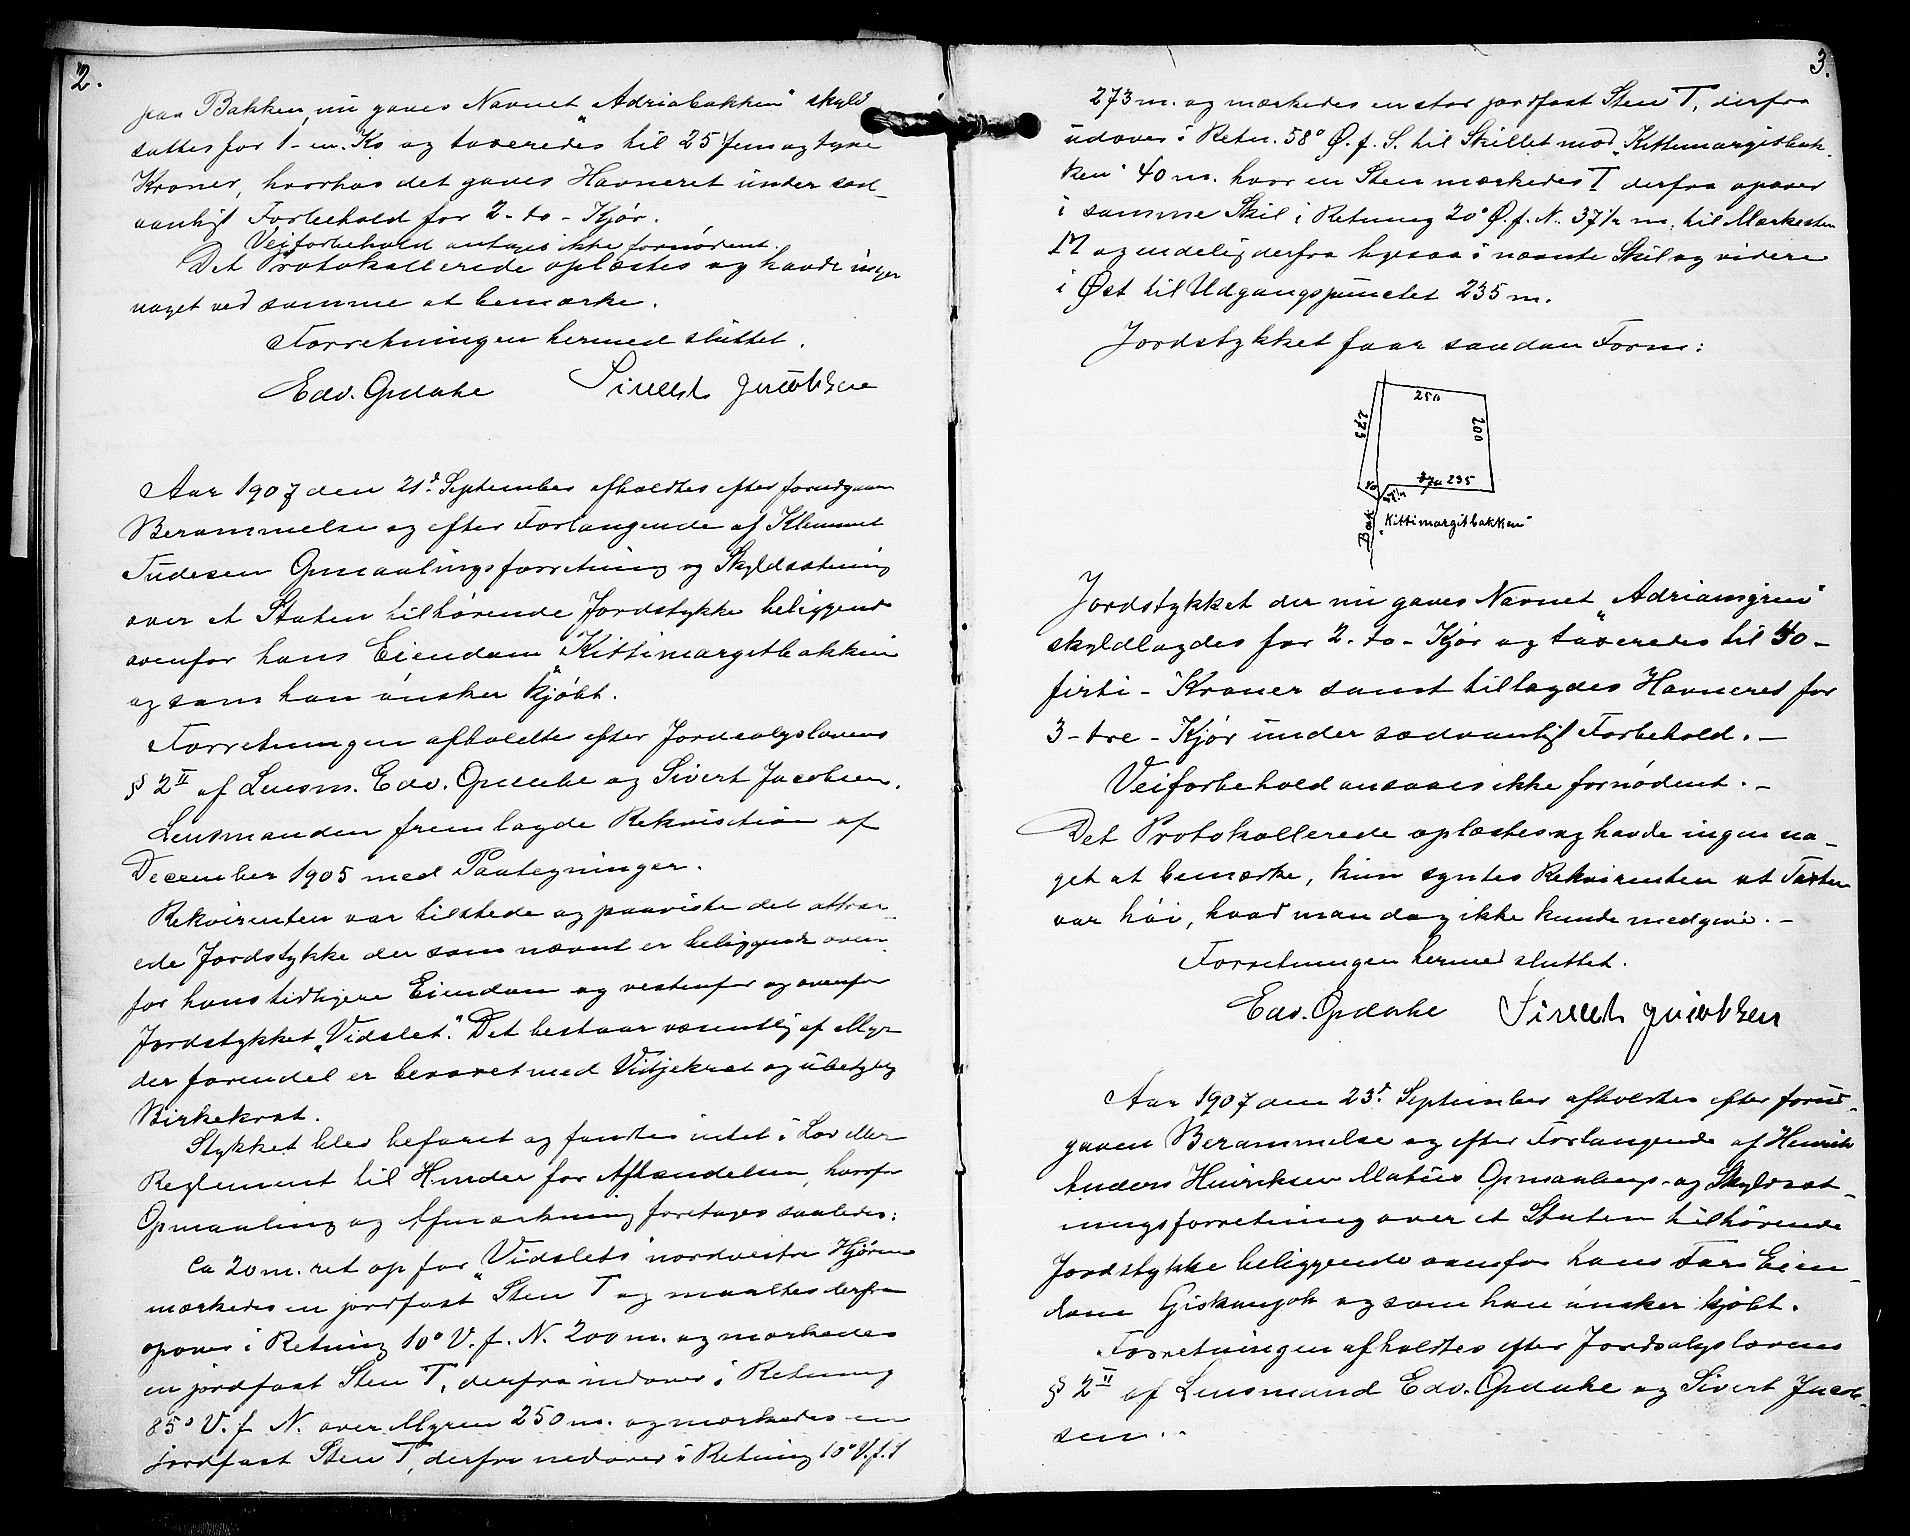 2.
paa Bakken, nu gaves Navnet „Adriabakken" skyld
sattes for 1 - en - Ko og taxeredes til 25 fem og tyve
Kroner, hvorhos det gaves Havneret under sæd-
vanligt Forbehold for 2 - to - Kjør.
Veiforbehold antages ikke fornødent.
Det Protokollerede oplæstes og havde ingen
noget ved samme at bemærke.
Forretningen hermed sluttet.
Edv. Opdahl Sivert Jacobsen
Aar 1907 den 21d September afholdtes efter forudgaaen
Berammelse og efter Forlangende af Klemmet
Tudesen Opmaalingsforretning og Skyldsætning
over et Staten tilhørende Jordstykke beliggende
ovenfor hans Eiendom „Kittimargitbakken
og som han ønsker kjøbt.
Forretningen afholdte efter Jordsalgslovens
§ 2 II af Lensm. Edv. Opdahl og Sivert Jacobsen.
Lensmanden fremlagde Rekvisition af
December 1905 med Paategninger.
Rekvirenten var tilstede og paaviste det attraa-
ede Jordstykke der som nævnt er beliggende oven
for hans tidligere Eiendom og vestenfor og ovenfor
Jordstykket „Vidslet". Det bestaar væsentlig af Myr
der forendel er bevoxet med Vidjekrat og ubetydelig
Birkekrat.
Stykket blev befaret og fandtes intet i Lov eller
Reglement til Hinder for Afhændelsen, hvorfor
Opmaaling og Afmærkning foretages saaledes:
Ca 20 m. ret op for „Vidslets" nordvestre Hjørne
mærkedes en jordfast Sten T og maaltes derfra
opover i Retning 10° V. f. N. 200 m. og mærkedes
en jordfast Sten T, derfra indover i Retning
85° V. f. N. over Myren 250 m. og mærkedes en
jordfast Sten T, derfra nedover i Retning 10° V. f. S
3.
273 m. og mærkedes en stor jordfast Sten T, derfra
udover i Retn. 58° Ø. f. S. til Skillet mod „Kittimargitbak-
ken" 40 m. hvor en Sten mærkedes T derfra opover
i samme Skil i Retning 20° Ø. f. N. 37½ m. til Mærkesten
M og endelig derfra ligesaa i nævnte Skil og videre
i Øst til Udgangspunctet 235 m.
Jordstykket faar saadan Form:
250
273
200
40
37½
235
Bæk
„Kittimargitbakken"
Jordstykket der nu gaves Navnet „Adriamyren"
skyldlagdes for 2 - to - Kjør og taxeredes til 40 -
firti - Kroner samt tillagdes Havneret for
3 - tre - Kjør under sædvanligt Forbehold. -
Veiforbehold ansaaes ikke fornødent. -
Det Protokollerede oplæstes og havde ingen no-
get at bemærke, kun syntes Rekvirenten at Taxten
var høi, hvad man dog ikke kunde medgive. -
Forretningen hermed sluttet.
Edv. Opdahl Sivert Jacobsen
Aar 1907 den 23d September afholdtes efter forud-
gaaen Berammelse og efter Forlangende af Henrik
Anders Henriksen Matiis Opmaalings- og Skyldsæt-
ningsforretning over et Staten tilhørende
Jordstykke beliggende ovenfor hans Fars Eien-
dom Giskamjok og som han ønsker kjøbt.
Forretningen afholdtes efter Jordsalgslovens
§ 2 II af Lensmand Edv. Opdahl og Sivert Jacob-
sen. -